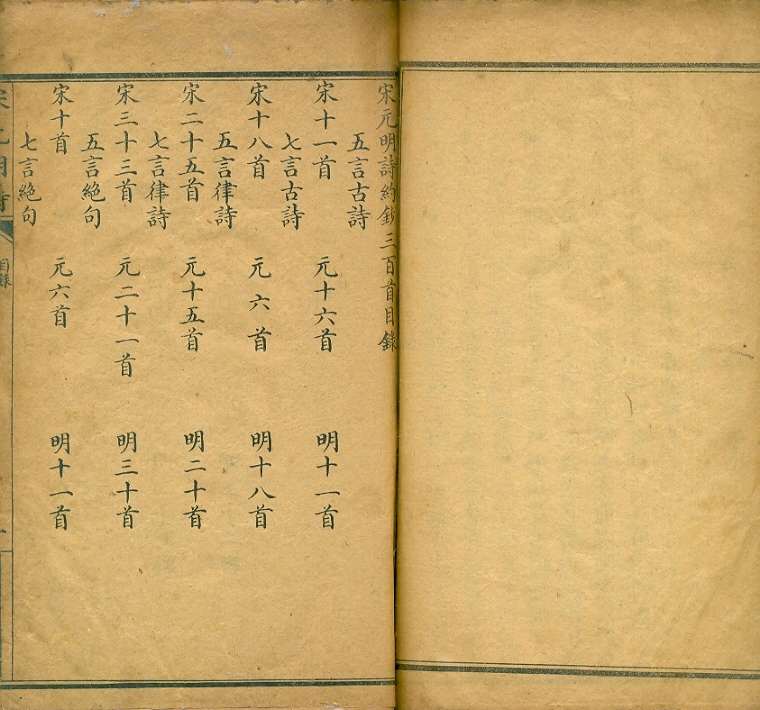 宋元明詩約鈔三百首目錄
五言古詩
宋十一首 元十六首 明十一首
七言古詩
宋十八首 元六首 明十八首
五言律詩
宋二十五首 元十五首 明二十首
七言律詩
宋三十三首 元二十一首 明三十首
五言絕句
宋十首 元六首 明十一首
七言絕句
宋元明詩 目錄 一